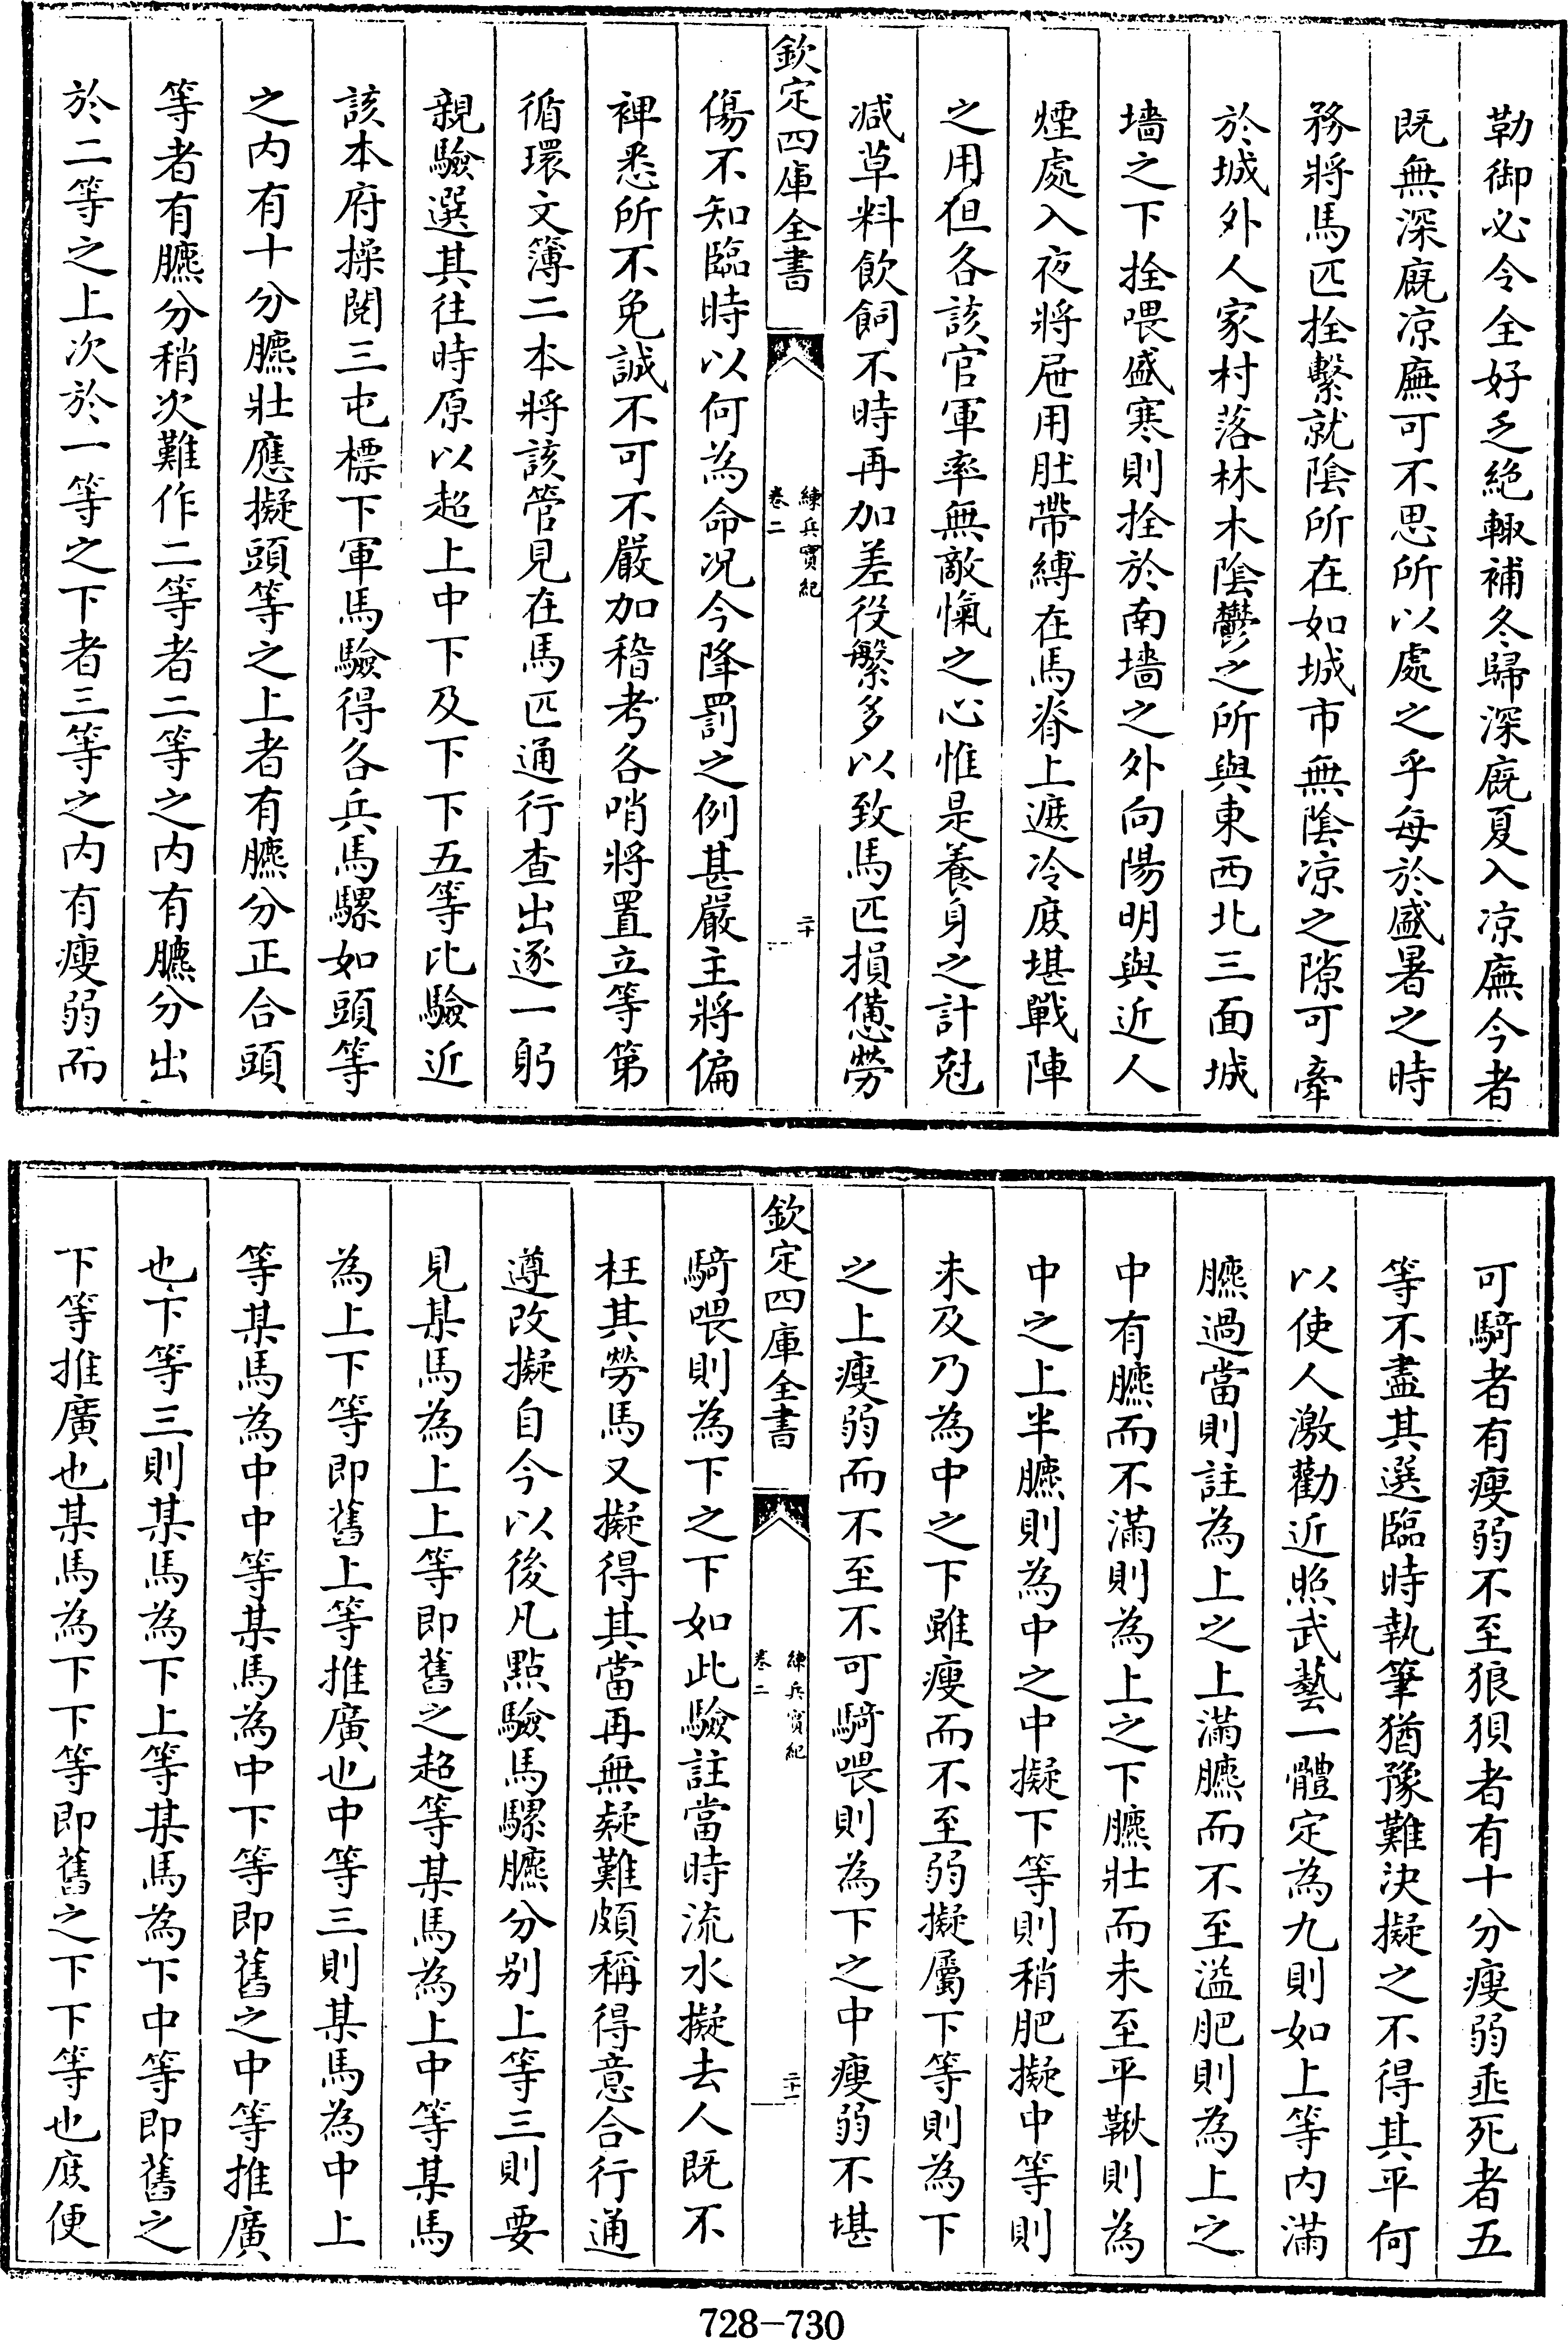 勒御必令全好乏絶輙補冬歸深廐夏入凉廡今者
既無深廐凉廡可不思所以處之乎每於盛暑之時
務將馬匹拴繫就陰所在如城市無隂凉之隙可牽
於城外人家村落林木陰鬱之所與東西北三面城
墻之下拴喂盛寒則拴於南墻之外向陽明與近人
煙處入夜將屉用肚帶縛在馬脊上遮冷庻堪戰陣
之用但各該官軍率無敵愾之心惟是養身之計尅
减草料飲飼不時再加差役繁多以致馬匹損憊勞
欽定四庫全書
練兵實紀
卷二
二十
傷不知臨時以何為命况今降罰之例甚嚴主將偏
裨悉所不免誠不可不嚴加稽考各哨將置立等第
循環文簿二本將該管見在馬匹通行查出逐一躬
親驗選其往時原以超上中下及下下五等比驗近
該本府操閱三屯標下軍馬驗得各兵馬騾如頭等
之内有十分臕壯應擬頭等之上者有臕分正合頭
等者有臕分稍次難作二等者二等之内有臕分出
於二等之上次於一等之下者三等之内有瘦弱而
可騎者有瘦弱不至狼狽者有十分瘦弱垂死者五
等不盡其選臨時執筆猶豫難決擬之不得其平何
以使人激勸近照武藝一體定為九則如上等内滿
臕過當則註為上之上滿臕而不至溢肥則為上之
中有臕而不滿則為上之下臕壯而未至平鞦則為
中之上半臕則為中之中擬下等則稍肥擬中等則
未及乃為中之下雖瘦而不至弱擬屬下等則為下
之上瘦弱而不至不可騎喂則為下之中瘦弱不堪
欽定四庫全書
練兵實紀
卷二
二十一
騎喂則為下之下如此驗註當時流水擬去人既不
枉其勞馬又擬得其當再無疑難頗稱得意合行通
遵改擬自今以後凡點驗馬騾臕分别上等三則要
見某馬為上上等即舊之超等某馬為上中等某馬
為上下等即舊上等推廣也中等三則某馬為中上
等某馬為中中等某馬為中下等即舊之中等推廣
也下等三則某馬為下上等某馬為下中等即舊之
下等推廣也某馬為下下等即舊之下下等也庻便
728-730